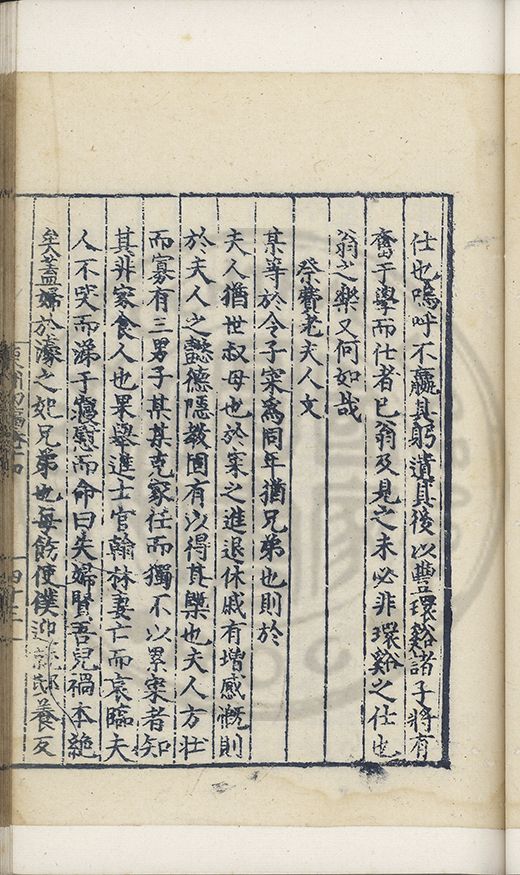 仕也嗚呼不贏其躬遺其後以豐環谿諸子將有
奮于學而仕者已翁及見之未必非環谿之仕也
翁之樂又何如哉
祭費老夫人文
某等於令子寀爲同年猶兄弟也則於
夫人猶世叔母也於寀之進退休戚有增感慨則
於夫人之懿德隱教固有以得其槩也夫人方壯
而寡有三男子某某克家任而獨不以累寀者知
其非家食人也果舉進士官翰林妻亡而哀臨夫
人不哭而涕于慰而命曰夫婦賢吾兒禍本絶
矣蓋婦於濠之妃兄弟也每飭使僕迎就邸養反